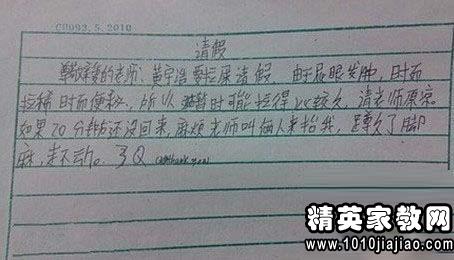 CH093.5.2010
请假
尊敬亲爱的老师：黄宇浩要拉屎请假 由于屁眼发肿，时而
拉稀时而便秘，所以 时可能拉得比较久 请老师原谅
如果20分钟还没回来，麻烦老师叫俩人来抬我，蹲久了脚
麻，走不动。3Q thank you
精英家教网
www.1010jiajiao.com